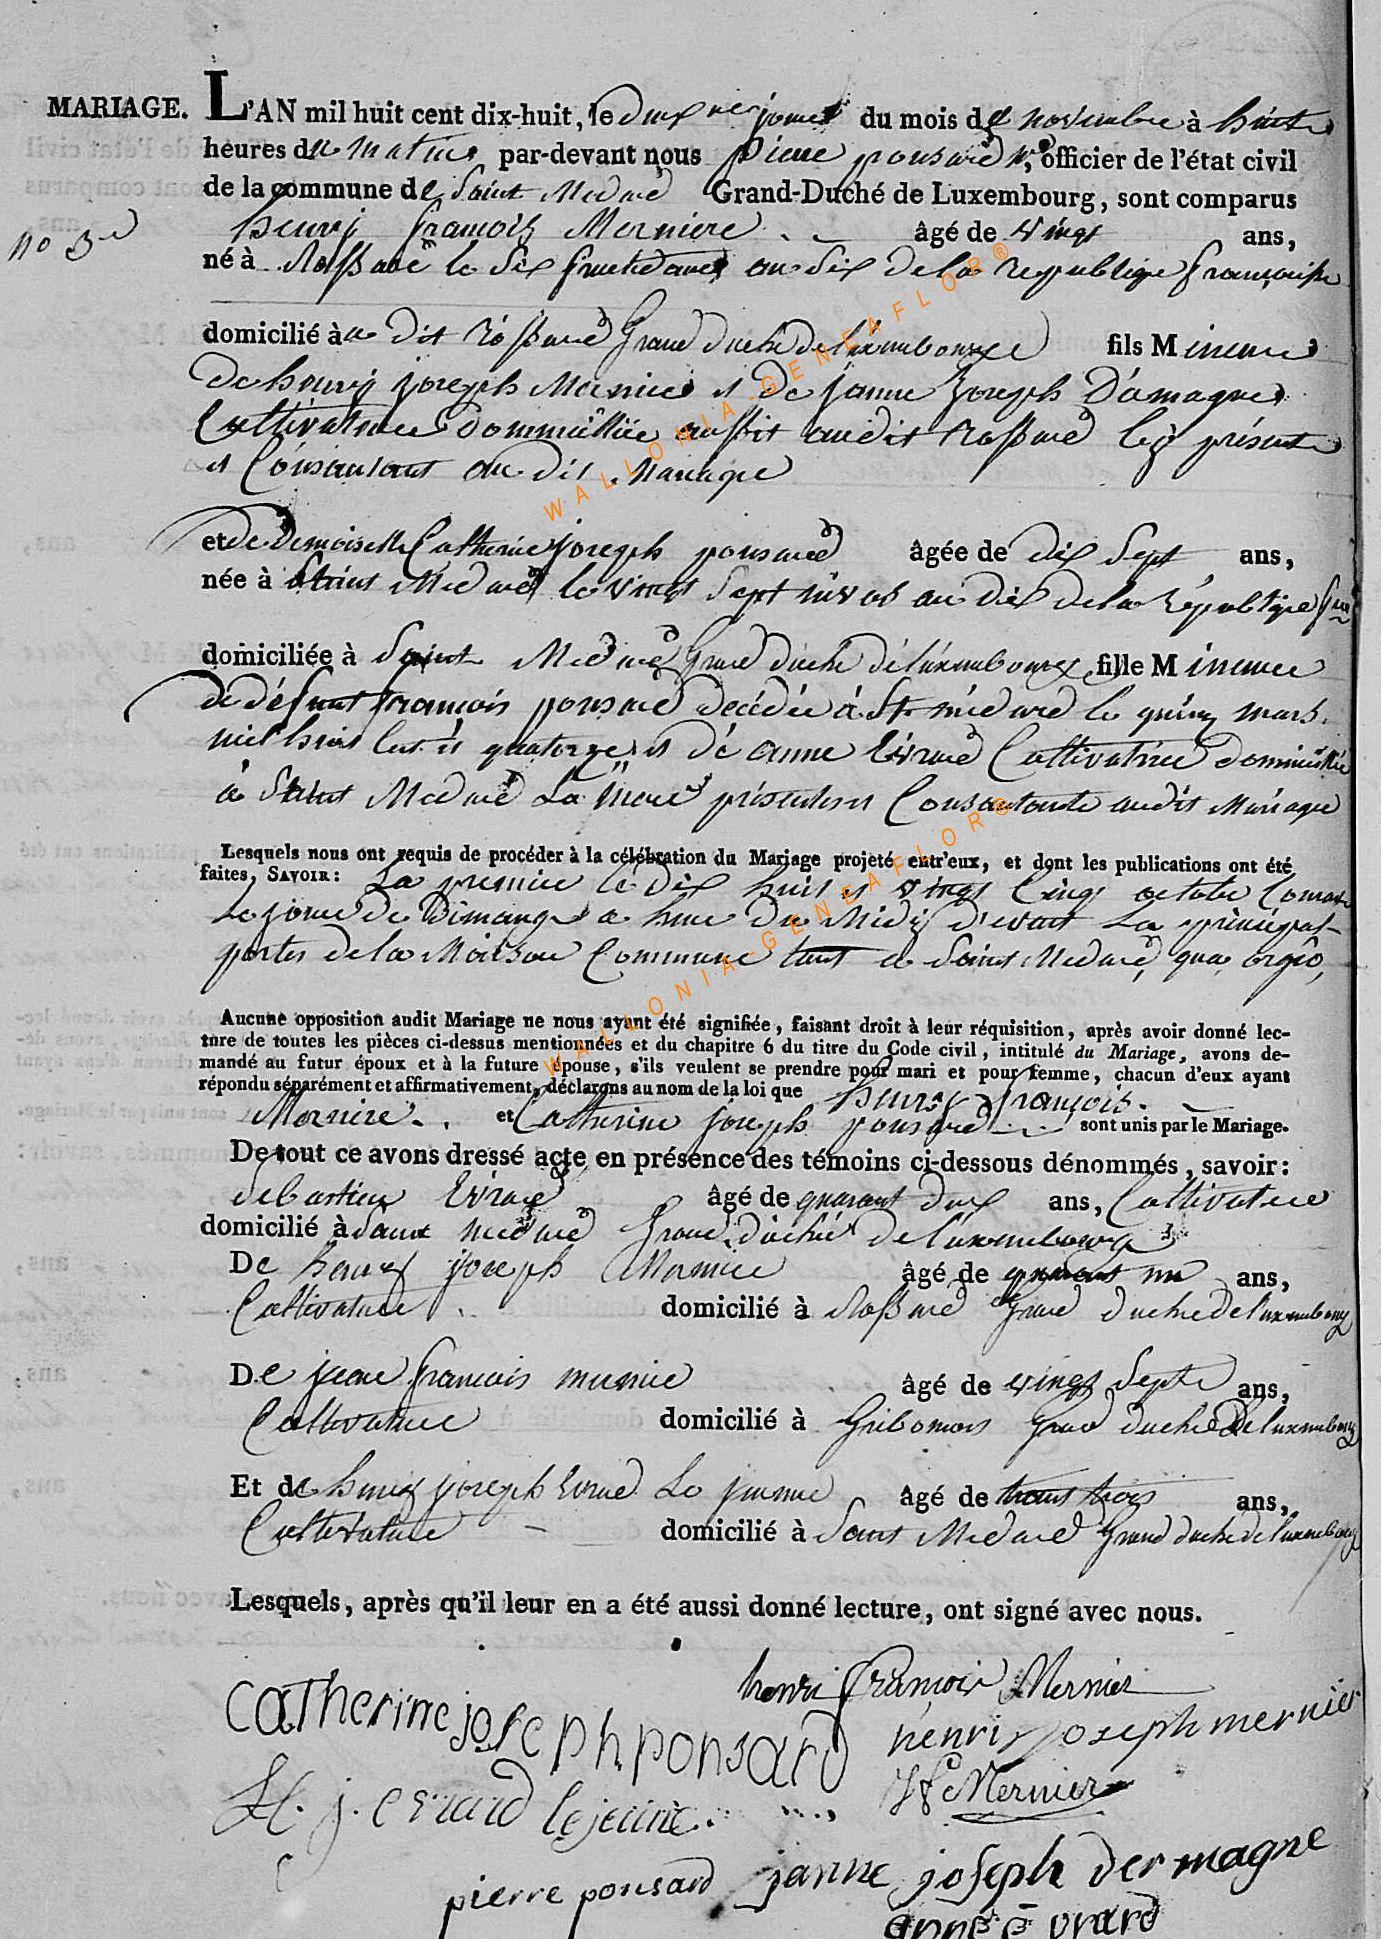 MARIAGE. L'AN mil huit cent dix-huit, le deux me jour du mois de novembre à huit
heures du matin par-devant nous pierre ponsard, officier de l'état civil
de la commune de Saint Medard Grand-Duché de Luxembourg, sont comparus
no 3e
henry françois Merniere âgé de vingt ans,
né à Rossard le Six fructidore an Six de la republique française
domicilié à u dit rossard Grand duché de luxembourge fils Mineure
de henry joseph Mernier et de janne joseph Damagne
Cultivateure domicilliée aussit audit Rossard les présent
et Consantant au dit Mariage
et de Demoiselle Catherine joseph ponsard âgée de dix Sept ans,
née à Saint Medard le vingt Sept nivos an dix de la République
domiciliée à Saint Medard Grand duché de luxembourg fille Mineure
de défunt françois ponsard decédée à St médard le quinz mars
mil huit cent et quatorze et de anne Evrard Cultivatrice domiciliée
à Saint Medard La Mere présente et Consantante audit Mariage
Lesquels nous ont requis de procéder à la célébration du Mariage projeté entr'eux, et dont les publications ont été
faites, SAVOIR: La premier le dix huit et vingt Cinq octobre
Le jour de Dimange a heure du Midÿ devant La principal
porter de la Maison Commune tant a Saint Medard, que orgéo,
Aucune opposition audit Mariage ne nous ayant été signifiée, faisant droit à leur réquisition, après avoir donné lec-
ture de toutes les pièces ci-dessus mentionnées et du chapitre 6 du titre du Code civil, intitulé du Mariage, avons de-
mandé au futur époux et à la future épouse, s'ils veulent se prendre pour mari et pour femme, chacun d'eux ayant
répondu séparément et affirmativement, déclarons au nom de la loi que henry françois
Mernire et Catherine joseph ponsard sont unis par le Mariage.
De tout ce avons dressé acte en présence des témoins ci-dessous dénommés, savoir:
Sebastien Evrard âgé de quarant deux ans, Cultivateure
domicilié à Saint medard Grand duché de luxembourg
De henry joseph Mernier âgé de quarant un ans,
Cultivateure domicilié à Rossard Grand duché de luxembourg
De jean françois mernier âgé de vingt Septe ans,
Cultivateure domicilié à Gribomont Grand duché de luxembourg
Et de henry joseph Evrard Le jeunne âgé de trant trois ans,
Cultivateure domicilié à Saint Medard Grand duché de luxembourg
Lesquels, après qu'il leur en a été aussi donné lecture, ont signé avec nous.
henri françois Mernier
catherine joseph ponsard
henri joseph mernier
H. j. evrard lejeune.
Mernier
pierre ponsard
janne joseph dermagne
anne evrard
WALLONIA-GENEAFLOR®
WALLONIA-GENEAFLOR®